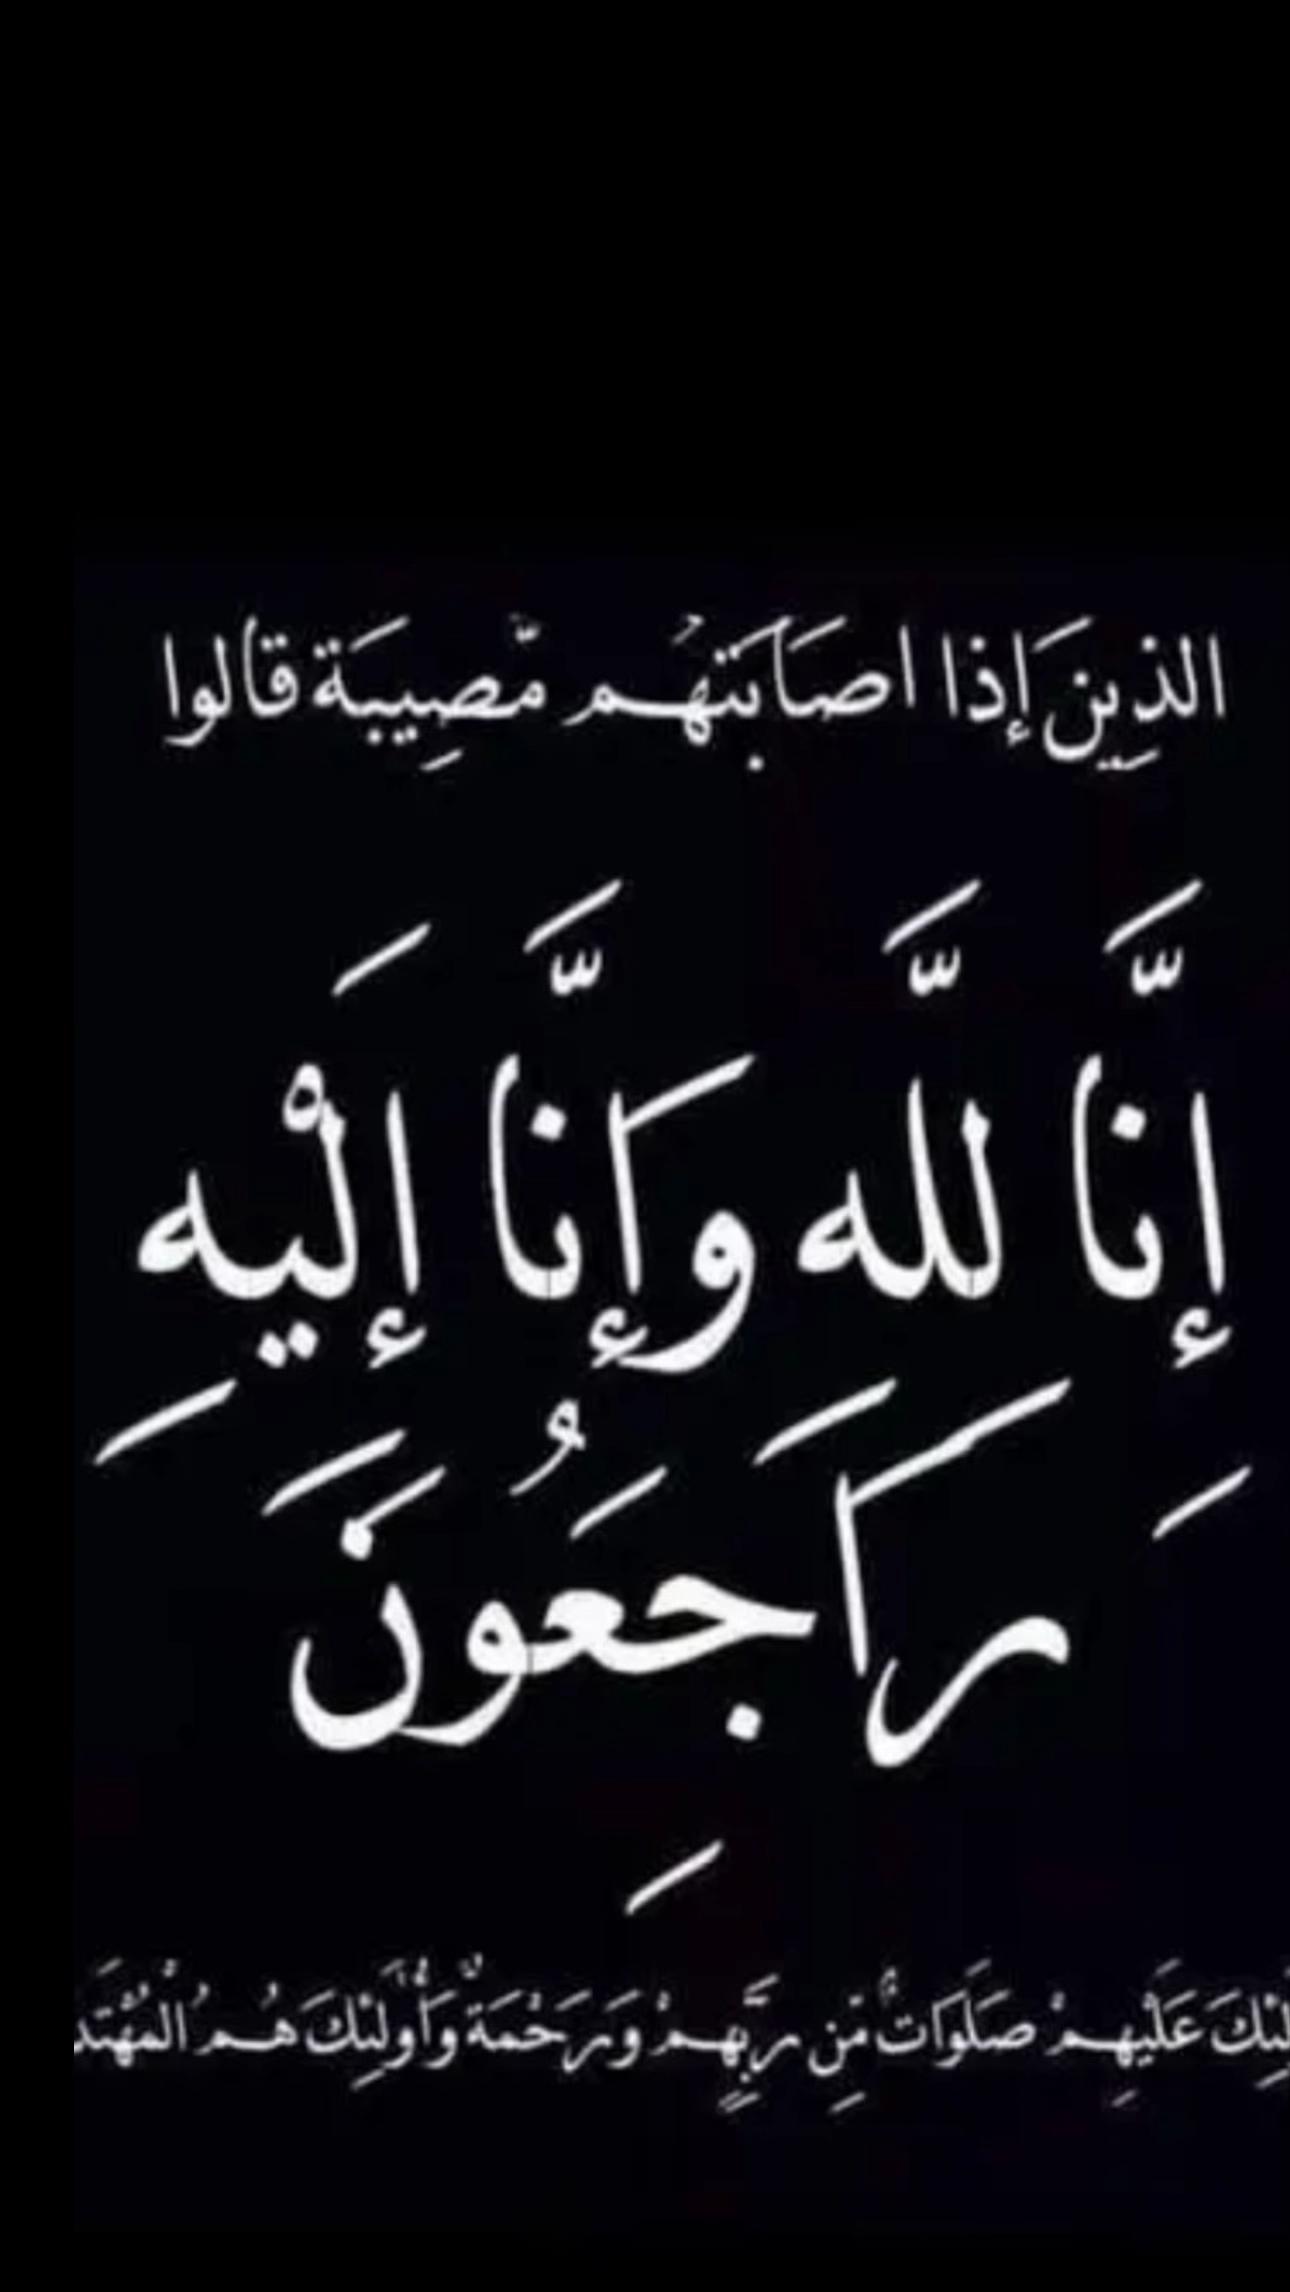 الذِينَ إِذا اصَابَتهُم مّصِيبَة قالوا
إِنَّا للَّه وَإِنَّا إِلَيْهِ
رَاجِعُونَ
عَلَيْهِمْ صَلَوَاتٌ مِّن رَبِّهِمْ وَرَحْمَةٌ وَأُولَئِكَ هُمُ